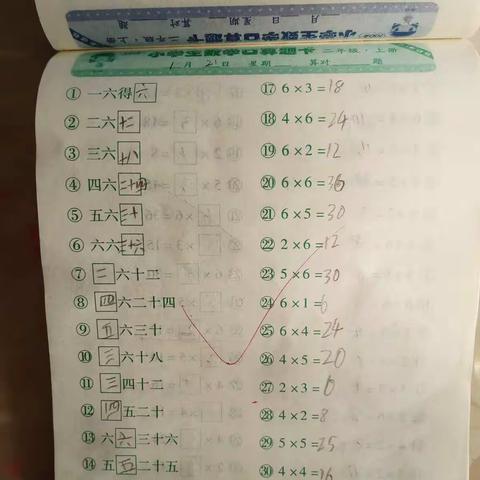 小学生数学口算题卡 二年级·上册
1月2日 星期 算对 题
① 一六得六
② 二六十二
③ 三六十八
④ 四六二十四
⑤ 五六三十
⑥ 六六三十六
⑦ 二六十二
⑧ 四六二十四
⑨ 五六三十
⑩ 三六十八
⑪ 三四十二
⑫ 四五二十
⑬ 六六三十六
⑭ 五五二十五
⑰ 6×3=18
⑱ 4×6=24
⑲ 6×2=12
⑳ 6×6=36
㉑ 6×5=30
㉒ 2×6=12
㉓ 5×6=30
㉔ 6×1=6
㉕ 6×4=24
㉖ 4×5=20
㉗ 2×3=6
㉘ 4×2=8
㉙ 5×5=25
㉚ 4×4=16